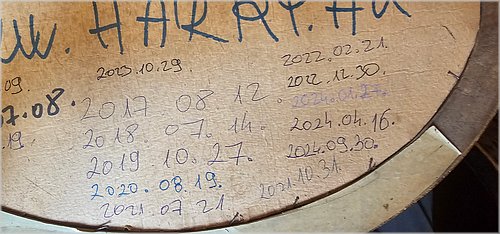 W. HARRY.HU
.09.
2023.10.29.
2022.02.21.
2022.12.30.
7.08.
2017 08 12.
2024.01.27.
.19.
2018. 07. 14.
2024.04.16.
2019 10. 27.
2024.09.30.
2020. 08. 19.
2021. 10. 31.
2021. 07 21